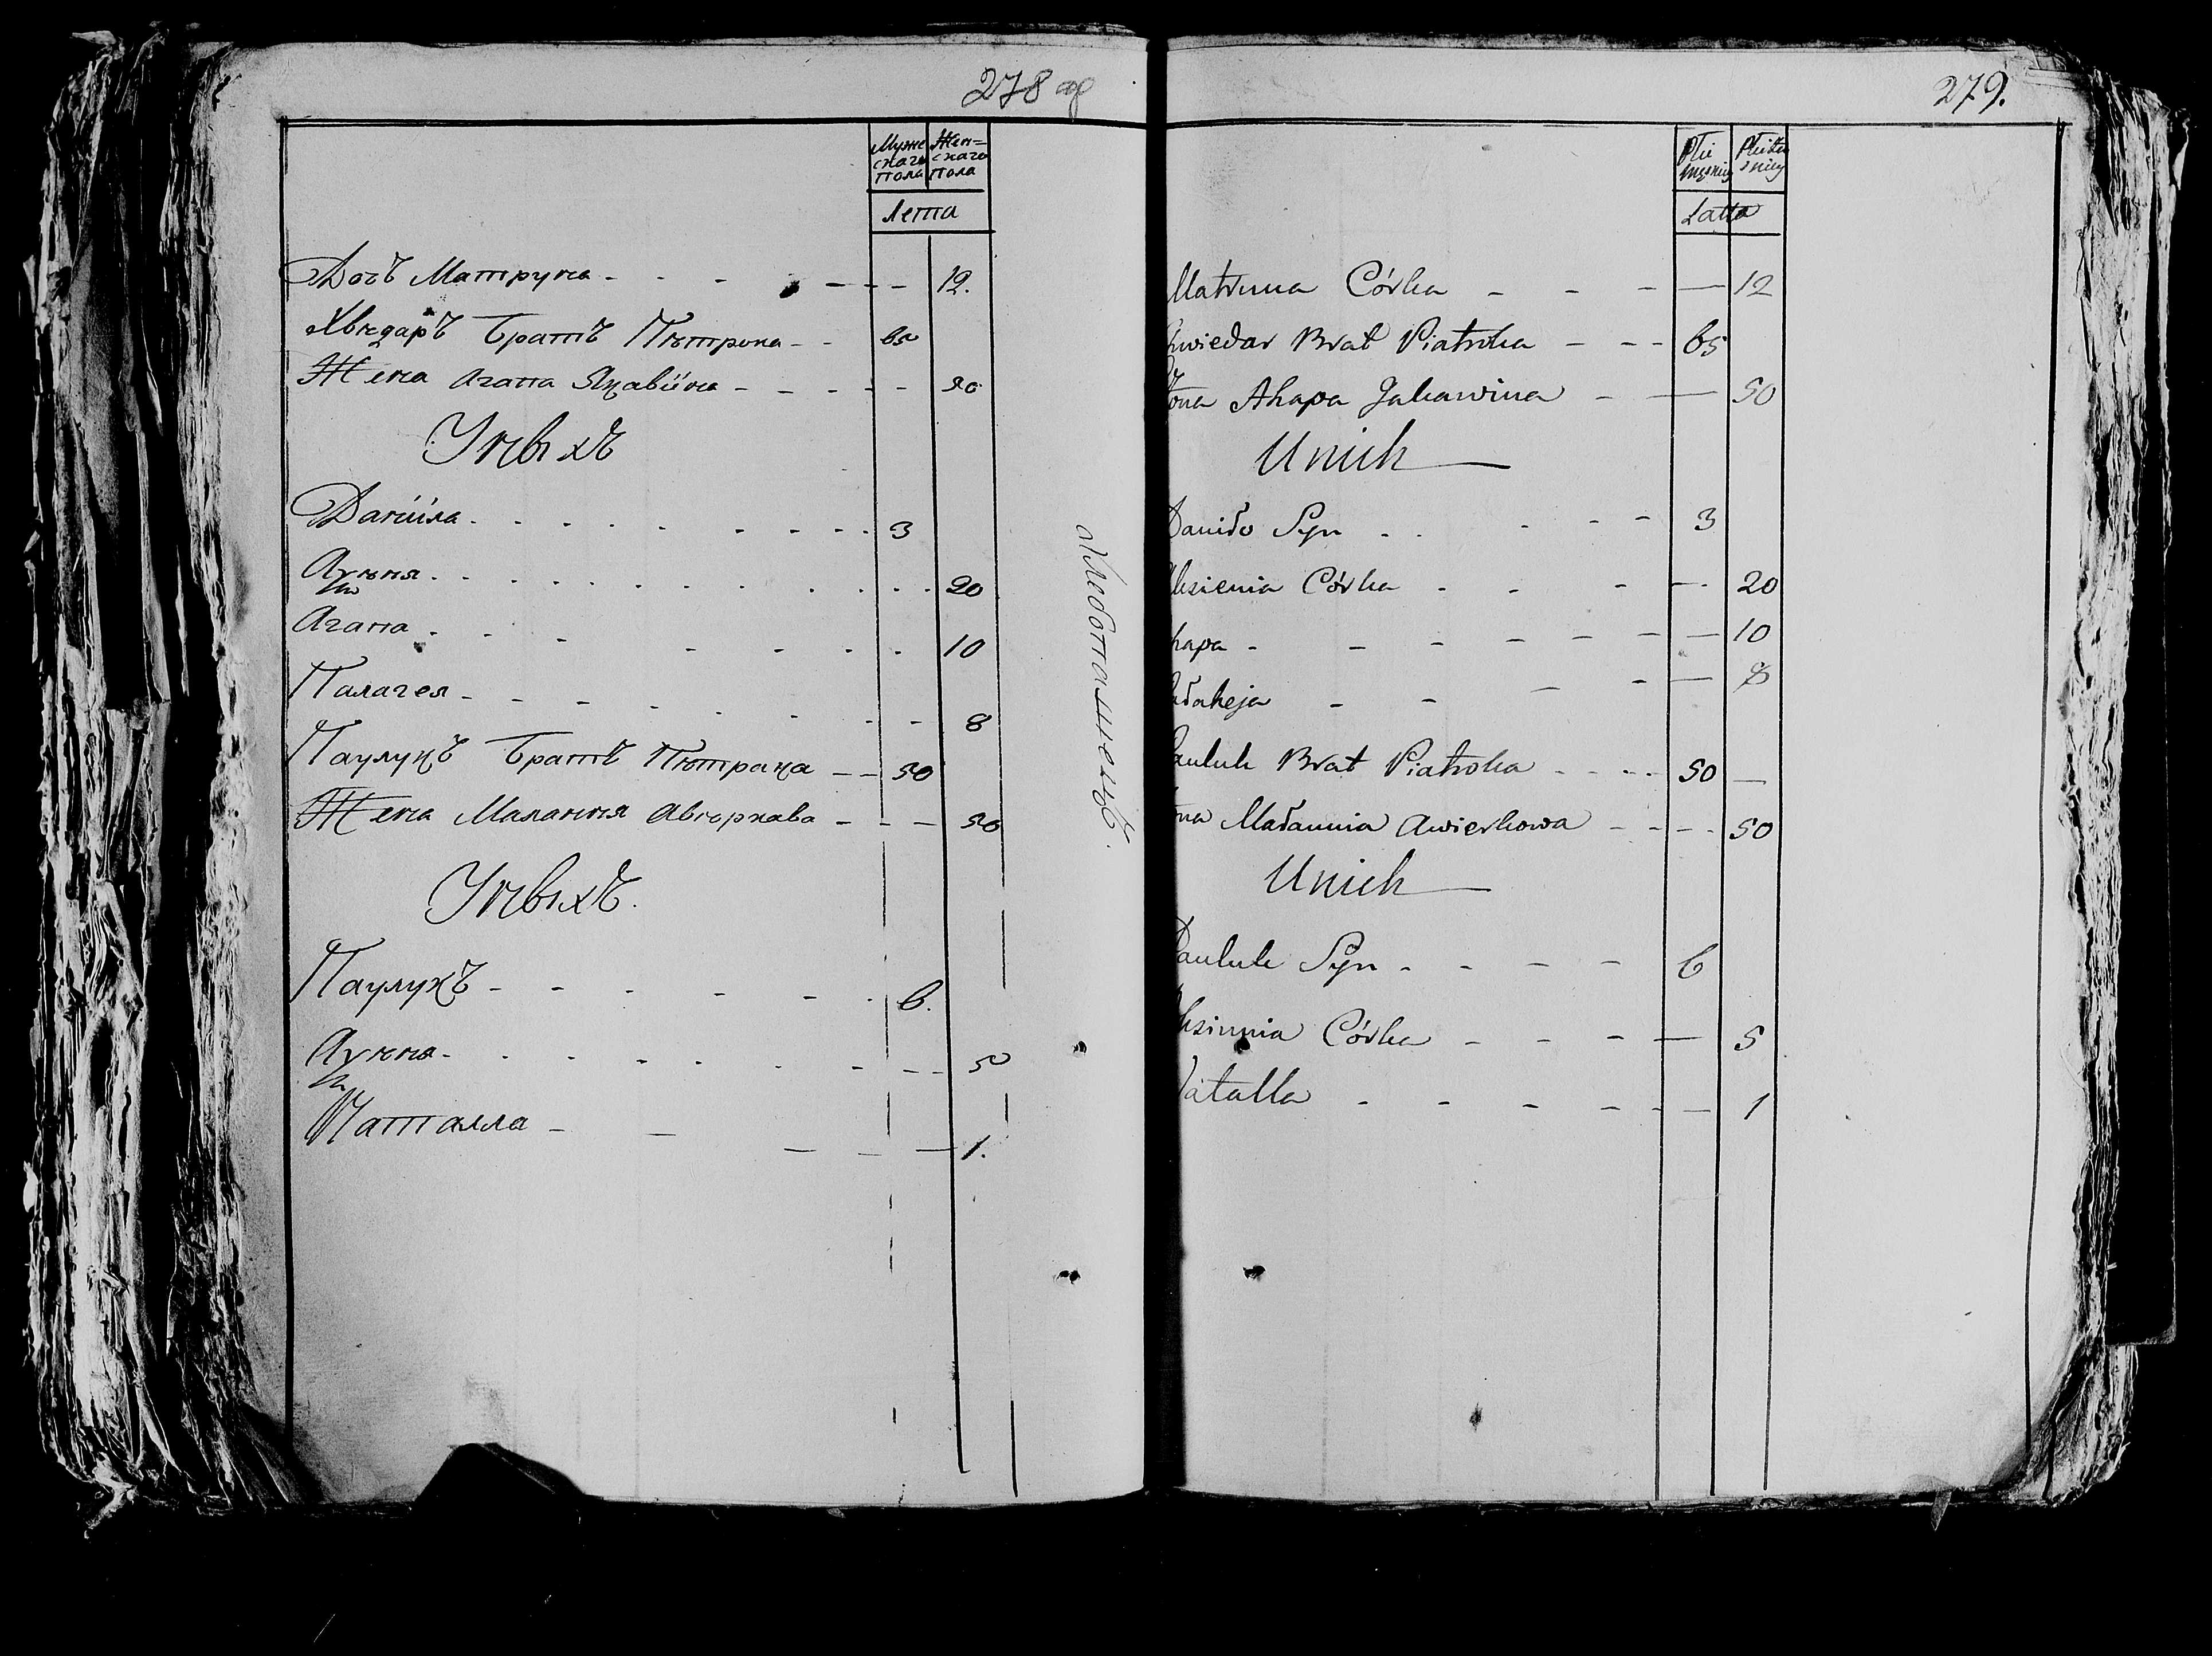 278 об
Муже
скаго
пола
Жен=
скаго
пола
Лета
Дочъ Матруна - - - - - - 12.
Хвѣдаръ Братъ Пѣтрока - - 65
Жена Агапа Яцавіина - - - - - 50
У нвыхъ
Даніила - - - - - - - - - 3
Аүѣня - - - - - - - - - - - 20
Агапа - - - - - - - 10
Палагея - - - - - - - - 8
Паулукъ Братъ Пѣтрака - - 50
Жена Малання Авѣркава - - - 50
У нвыхъ.
Паулукъ - - - - - - 6.
Аүѣня - - - - - - - - - 5
Наталла - - - - - 1.
279.
Płci
męskiej
Płci żeń
skiej
Latta
Matruna Córka - - - — 12
Chwiedar Brat Piatroka - - - 65
Żona Ahapa Jakawina - — 50
U nich —
Daniło Syn - - - - - 3
Aksienia Córka - - - — 20
Ahapa - - - - - - — 10
Pałaheja - - - - — 8
Pauluk Brat Piatroka - - - - 50 —
Żona Małannia Awierkowa - - - - 50
U nich —
Pauluk Syn - - - - 6
Aksinnia Córka - - - — 5
Natalla - - - - - — 1